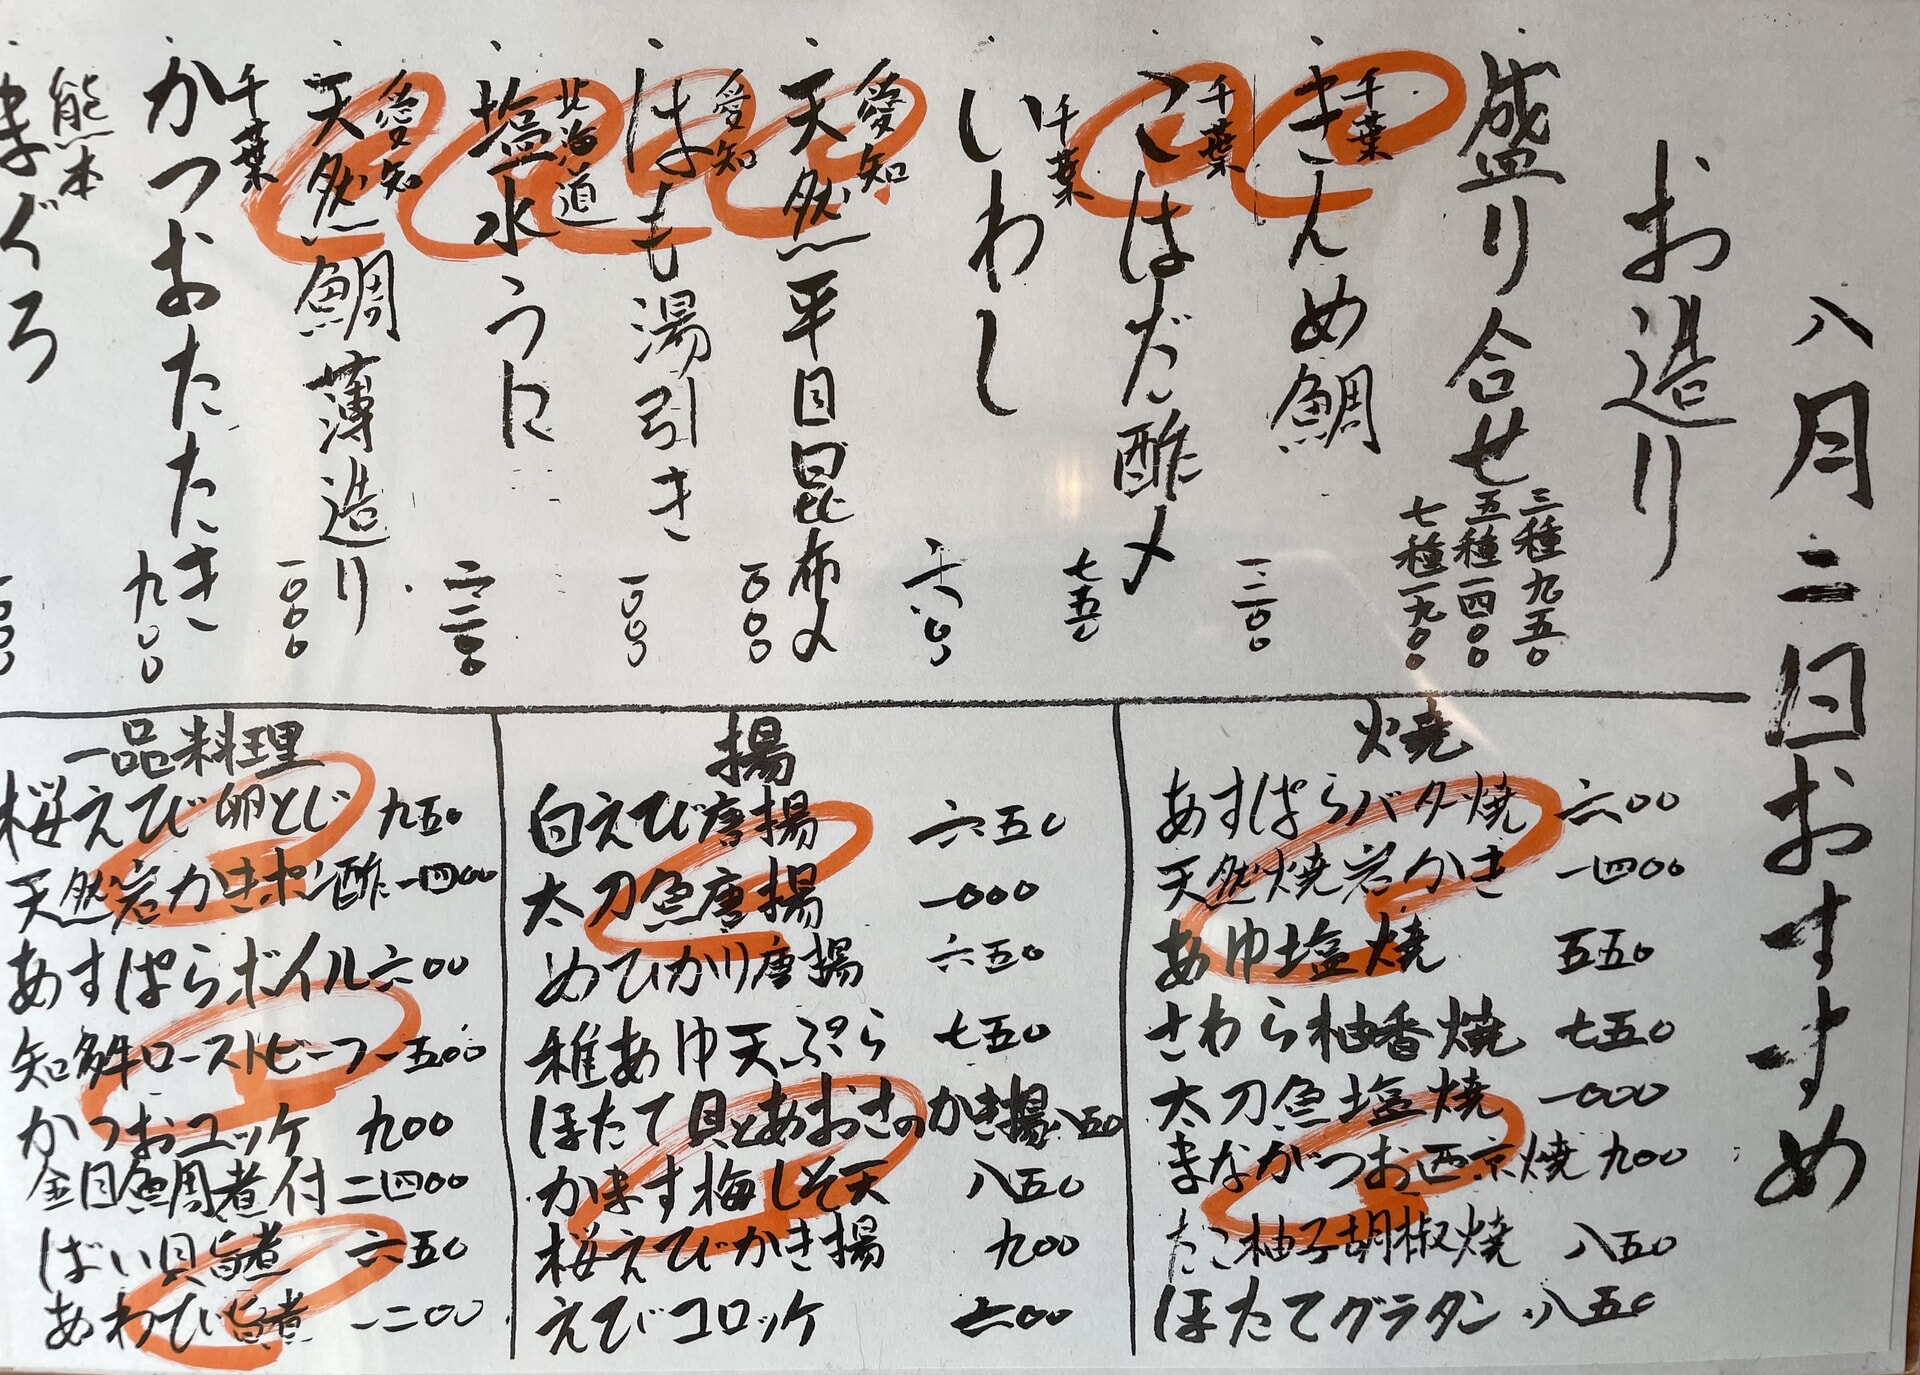 八月二日おすすめ
お造り
盛り合せ
三種九五〇
五種一四〇〇
七種一九〇〇
千葉
きんめ鯛 一三〇〇
千葉
こはだ酢〆 七五〇
千葉
いわし 六八〇
愛知
天然平目昆布〆 一〇〇〇
愛知
はも湯引き 一〇〇〇
北海道
塩水うに 二二〇〇
愛知
天然鯛薄造り 一〇〇〇
千葉
かつおたたき 九〇〇
熊本
まぐろ
焼
あすぱらバター焼 六〇〇
天然焼岩かき 一四〇〇
あゆ塩焼 五五〇
さわら柚香焼 七五〇
太刀魚塩焼 一〇〇〇
まながつお西京焼 九〇〇
たこ柚子胡椒焼 八五〇
ほたてグラタン 八五〇
揚
白えび唐揚 六五〇
太刀魚唐揚 一〇〇〇
めひかり唐揚 六五〇
稚あゆ天ぷら 七五〇
ほたて貝とあおさのかき揚 八五〇
かます梅しそ天 八五〇
桜えびかき揚 九〇〇
えびコロッケ 六〇〇
一品料理
桜えび卵とじ 九五〇
天然岩かきポン酢 一四〇〇
あすぱらボイル 六〇〇
知多牛ローストビーフ 一五〇〇
かつおユッケ 九〇〇
金目鯛煮付 二四〇〇
ばい貝旨煮 六五〇
あわび旨煮 一二〇〇